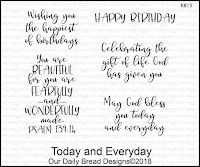 KB15
Wishing you
the happiest
of birthdays
You are
Beautiful
for you are
FEARFULLY
and
WONDERFULLY
made.
PSALM 139:14
HAPPY BIRTHDAY
Celebrating the
gift of life God
has given you
May God bless
you today
and everyday
Today and Everyday
Our Daily Bread Designs©2018